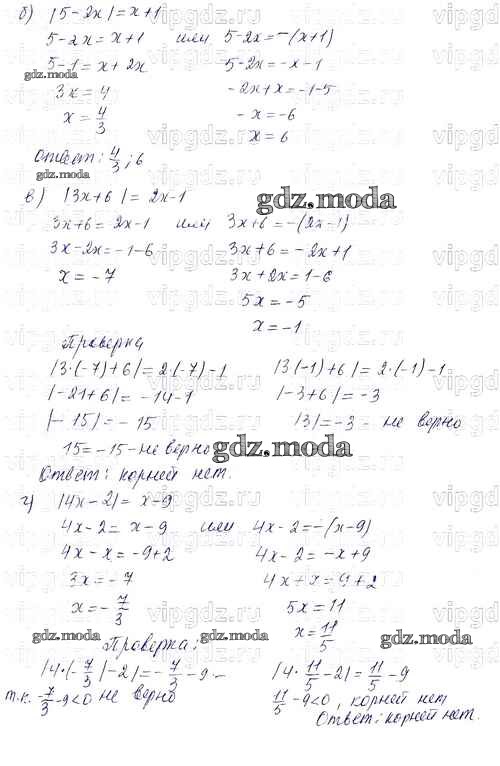 б) |5-2x|=x+1
5-2x=x+1 или 5-2x=-(x+1)
5-1=x+2x 5-2x=-x-1
gdz.moza
3x=4 -2x+x=-1-5
x=4/3 -x=-6
x=6
Ответ: 4/3; 6
gdz.moza
в) |3x+6|=2x-1
gdz.moza
3x+6=2x-1 или 3x+6=-(2x-1)
3x-2x=-1-6 3x+6=-2x+1
x=-7 3x+2x=1-6
5x=-5
x=-1
Проверка
|3·(-7)+6|=2·(-7)-1 |3(-1)+6|=2·(-1)-1
|-21+6|=-14-1 |-3+6|=-3
|-15|=-15 |3|=-3 - не верно
15=-15-не верно
gdz.moza
Ответ: корней нет.
г) |4x-2|=x-9
4x-2=x-9 или 4x-2=-(x-9)
4x-x=-9+2 4x-2=-x+9
gdz.moza
3x=-7 4x+x=9+2
x=-7/3 5x=11
x=11/5
gdz.moza gdz.moza
Проверка:
|4·(-7/3)-2|=-7/3-9- |4·11/5-2|=11/5-9
т.к. -7/3-9<0 не верно 11/5-9<0, корней нет
Ответ: корней нет.
vipgdz.ru